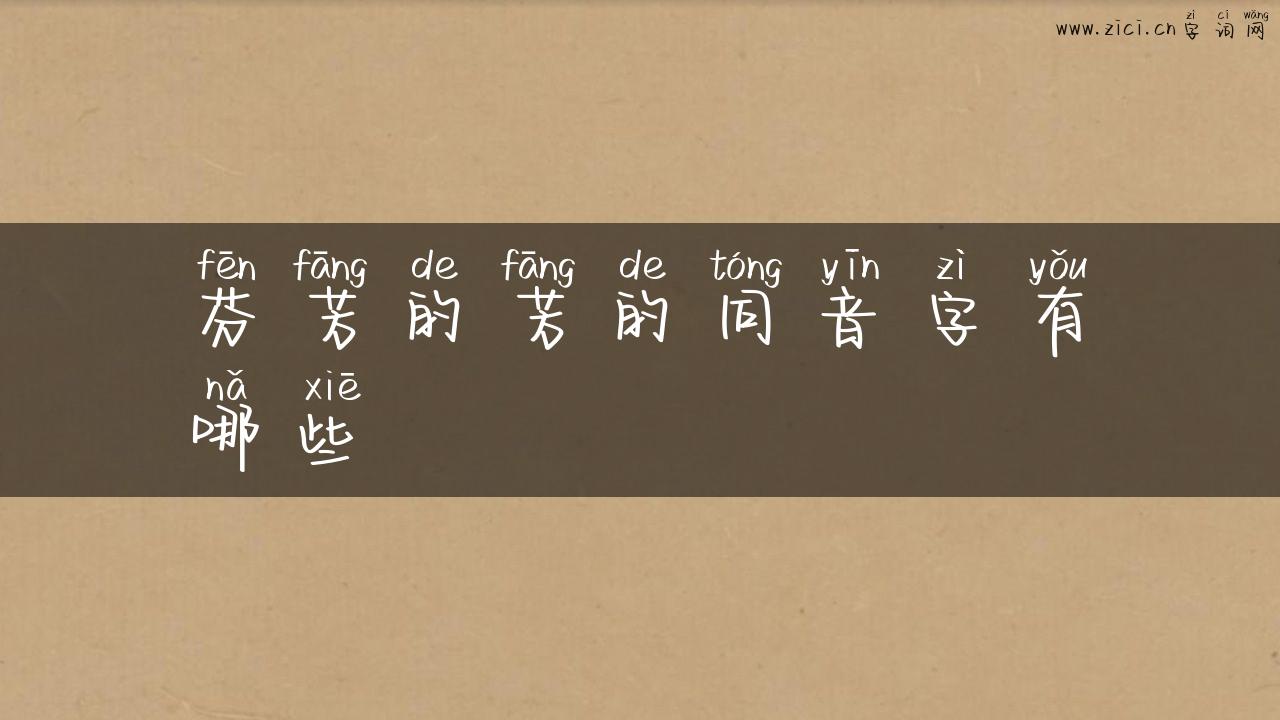 zì cí wǎng
www.zici.cn 字 词 网
fēn fāng de fāng de tóng yīn zì yǒu
芬 芳 的 芳 的 同 音 字 有
nǎ xiē
哪 些